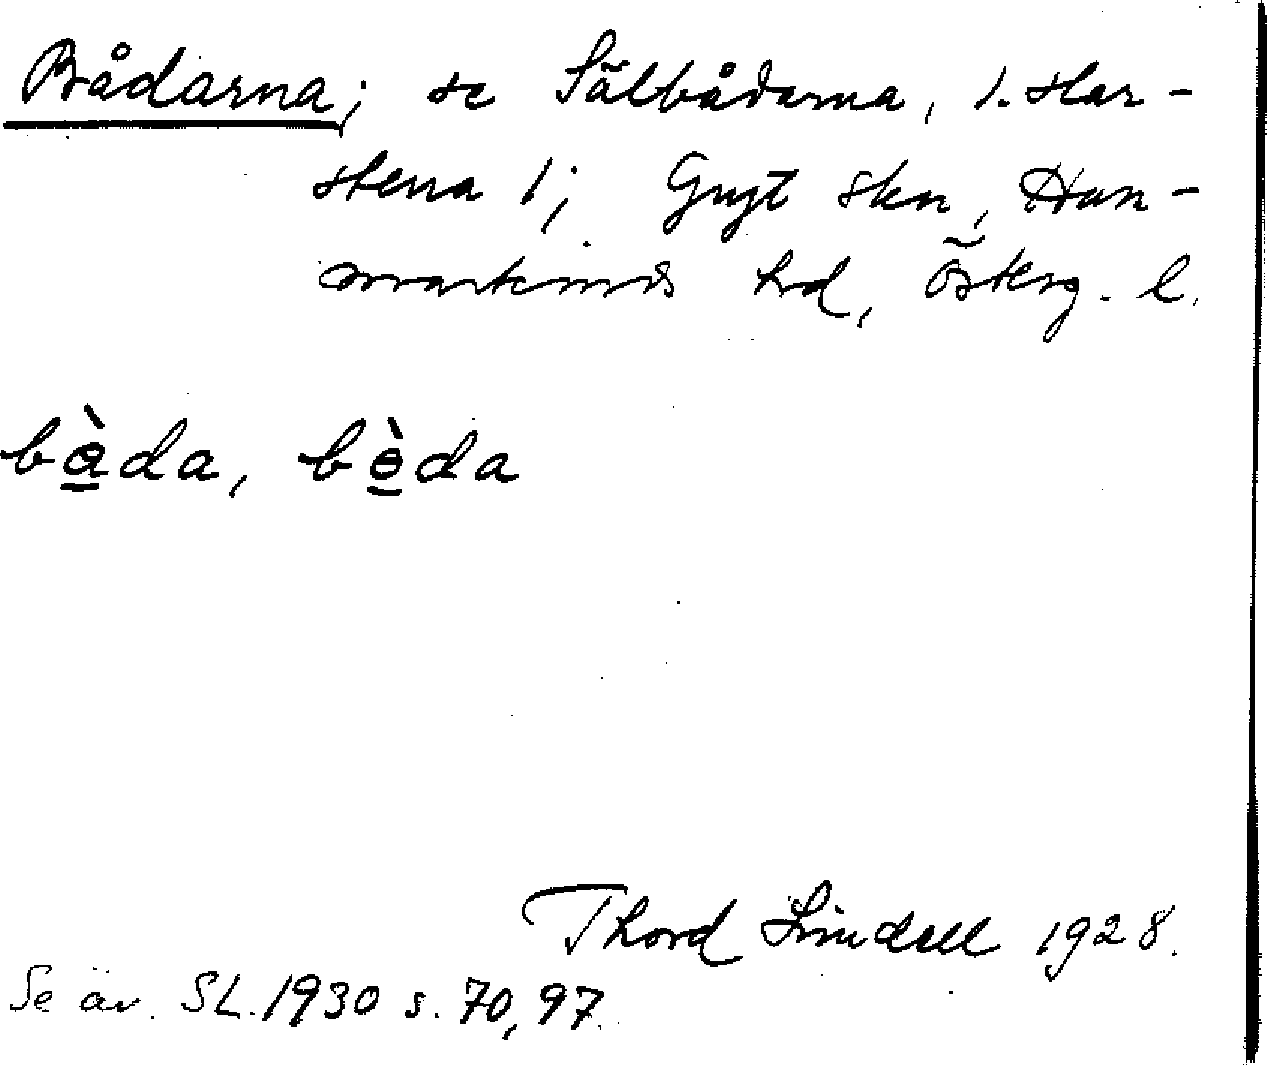 Bådarna; se Sälbådarna, 1. Har-
stena 1; Gryt skn, Ham-
markinds hd, Österg. l.
bàda, bèda
Thord Lindell 1928.
Se äv. SL. 1930 s. 70, 97.